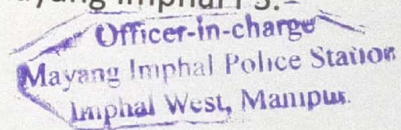 Mayang Imphal PS.-
Officer-in-charge
Mayang Imphal Police Station
Imphal West, Manipur.